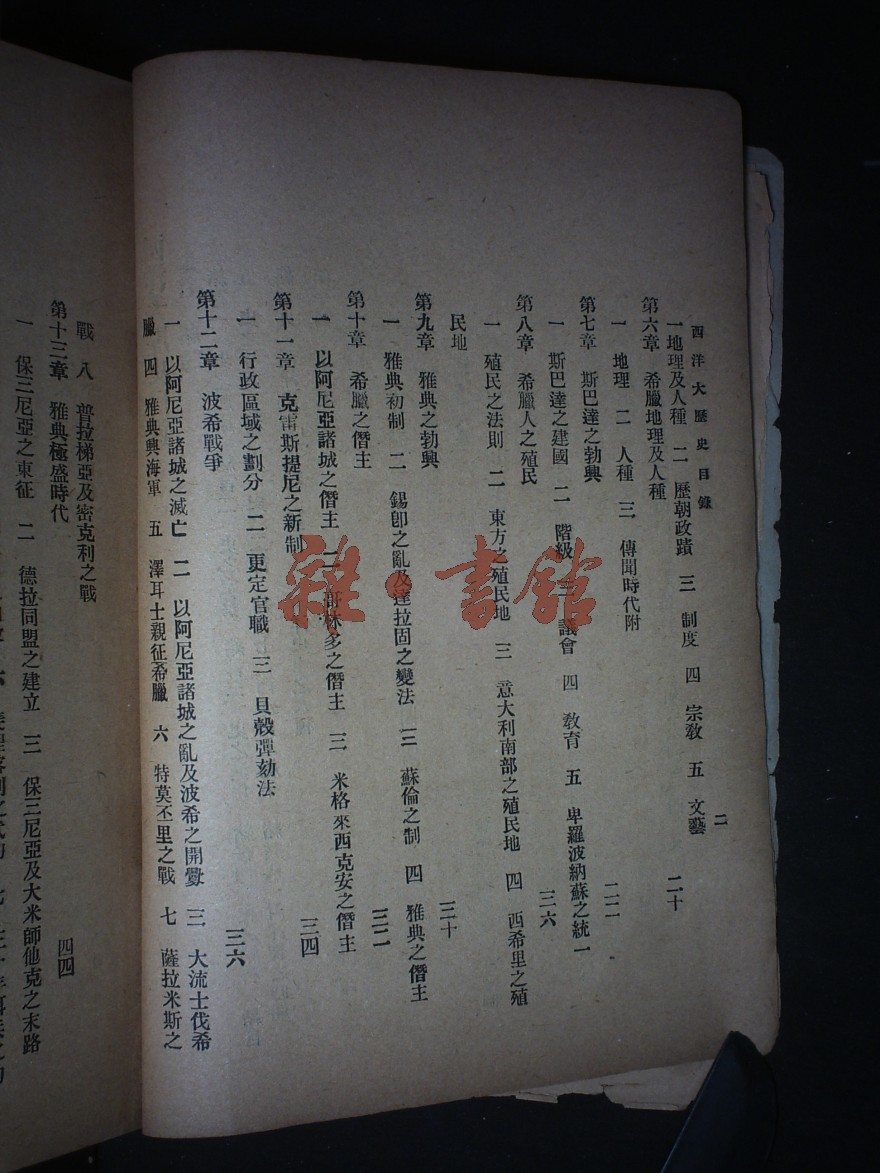 西洋大歷史 目錄 二
一地理及人種 二 歷朝政蹟 三 制度 四 宗敎 五 文藝
第六章 希臘地理及人種 二十
一 地理 二 人種 三 傳聞時代附
第七章 斯巴達之勃興 二二
一 斯巴達之建國 二 階級 三 議會 四 敎育 五 卑羅波納蘇之統一
第八章 希臘人之殖民 三六
一 殖民之法則 二 東方之殖民地 三 意大利南部之殖民地 四 西希里之殖
民地
第九章 雅典之勃興 三十
一 雅典初制 二 錫卽之亂及達拉固之變法 三 蘇倫之制 四 雅典之僭主
第十章 希臘之僭主 三二
一 以阿尼亞諸城之僭主 二 哥林多之僭主 三 米格來西克安之僭主
第十一章 克雷斯提尼之新制 三四
一 行政區域之劃分 二 更定官職 三 貝殼彈劾法
第十二章 波希戰爭 三六
一 以阿尼亞諸城之滅亡 二 以阿尼亞諸城之亂及波希之開釁 三 大流士伐希
臘 四 雅典興海軍 五 澤耳士親征希臘 六 特莫丕里之戰 七 薩拉米斯之
戰 八 普拉梯亞及密克利之戰
第十三章 雅典極盛時代 四四
一 保三尼亞之東征 二 德拉同盟之建立 三 保三尼亞及大米師他克之末路
雜·書館